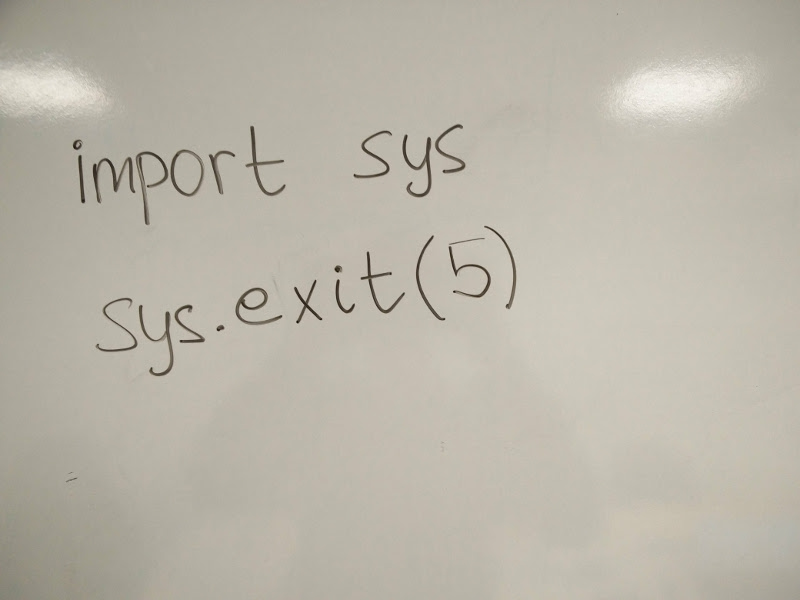 import sys
sys.exit(5)